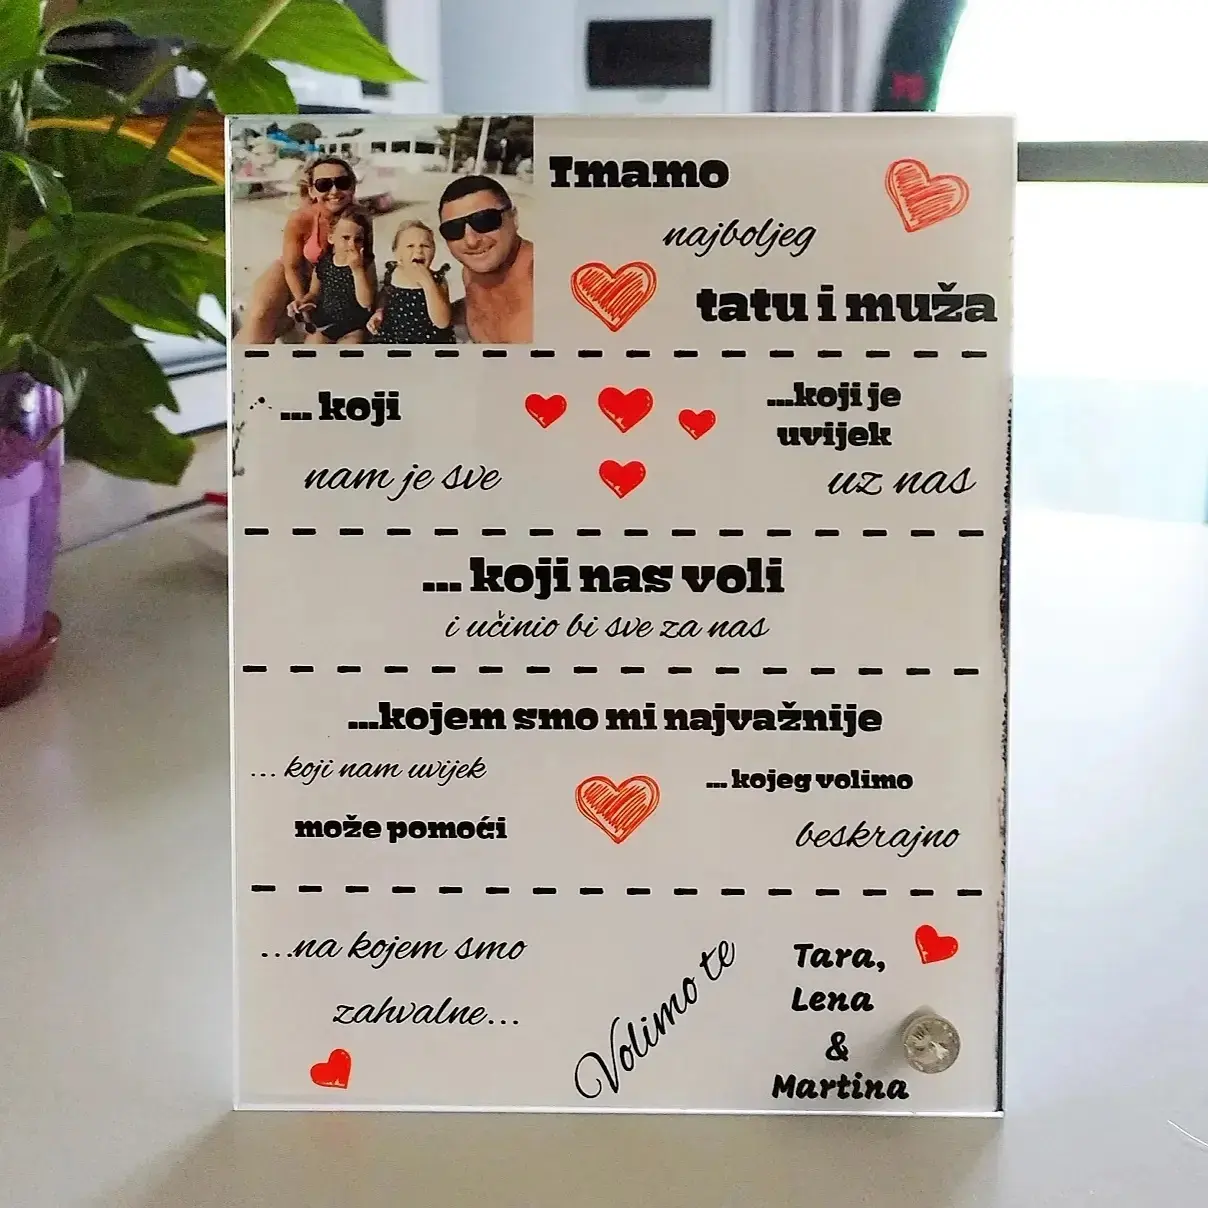 Imamo
najboljeg
tatu i muža
... koji
nam je sve
...koji je
uvijek
uz nas
... koji nas voli
i učinio bi sve za nas
...kojem smo mi najvažnije
... koji nam uvijek
može pomoći
... kojeg volimo
beskrajno
...na kojem smo
zahvalne...
Volimo te
Tara,
Lena
&
Martina